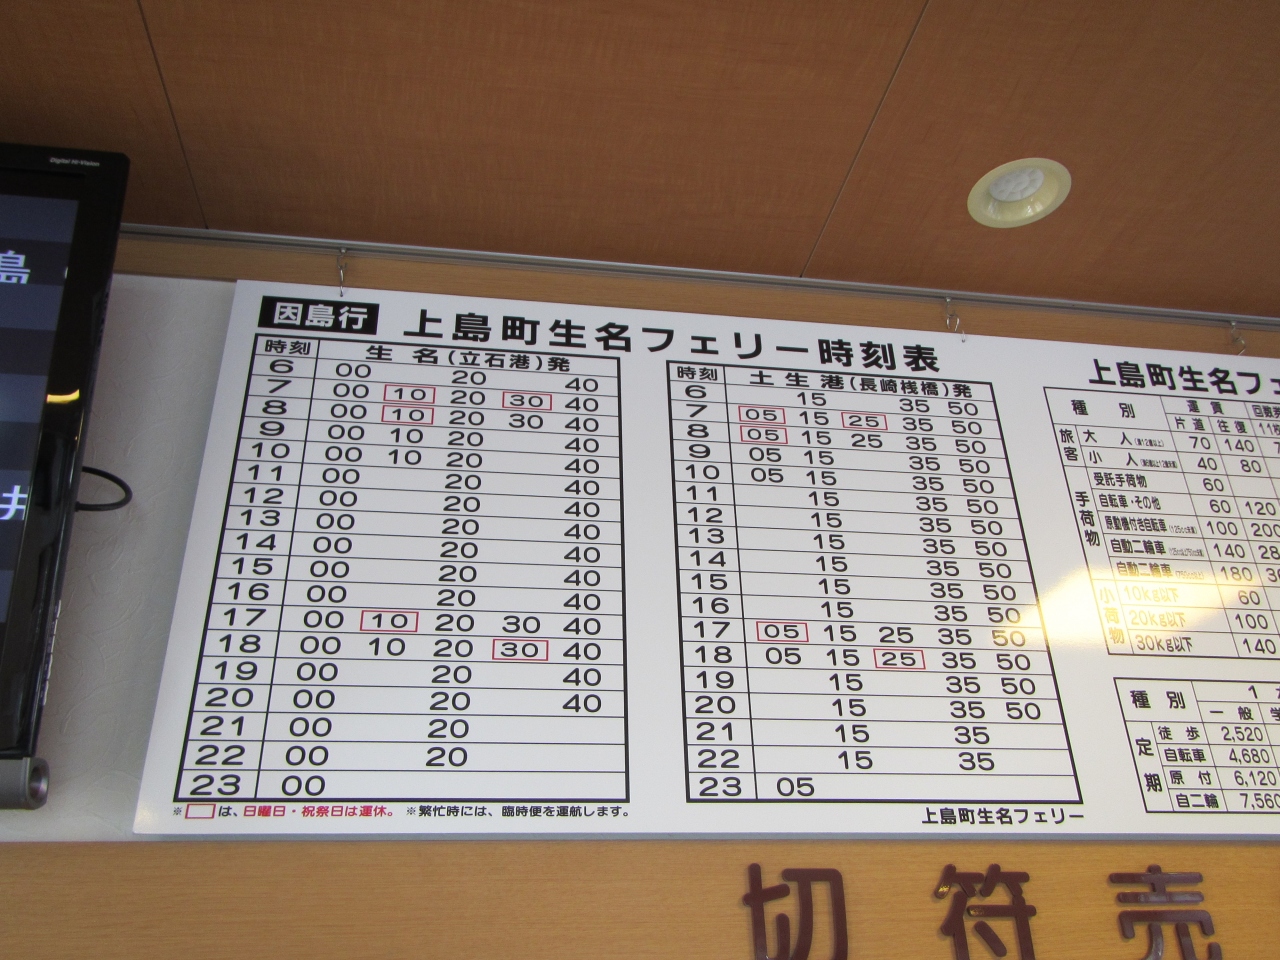 Digital Hi-Vision
島
井
因島行 上島町生名フェリー時刻表
時刻 生名(立石港)発
6 00 20 40
7 00 10 20 30 40
8 00 10 20 30 40
9 00 10 20 40
10 00 10 20 40
11 00 20 40
12 00 20 40
13 00 20 40
14 00 20 40
15 00 20 40
16 00 20 40
17 00 10 20 30 40
18 00 10 20 30 40
19 00 20 40
20 00 20 40
21 00 20
22 00 20
23 00
※ は、日曜日・祝祭日は運休。 ※繁忙時には、臨時便を運航します。
時刻 土生港(長崎桟橋)発
6 15 35 50
7 05 15 25 35 50
8 05 15 25 35 50
9 05 15 35 50
10 05 15 35 50
11 15 35 50
12 15 35 50
13 15 35 50
14 15 35 50
15 15 35 50
16 15 35 50
17 05 15 25 35 50
18 05 15 25 35 50
19 15 35 50
20 15 35 50
21 15 35
22 15 35
23 05
上島町生名フェリー
上島町生名フェ
種別 運賃 回数券
片道 往復 11枚
旅客 大人 70 140
小人 40 80
手荷物 受託手荷物 60
自転車・その他 60 120
原動機付き自転車 100 200
自動二輪車 140 28
自動二輪車 180 3
小荷物 10kg以下 60
20kg以下 100
30kg以下 140
種別 1
一般 学
定期 徒歩 2,520
自転車 4,680
原付 6,120
自二輪 7,560
切符売